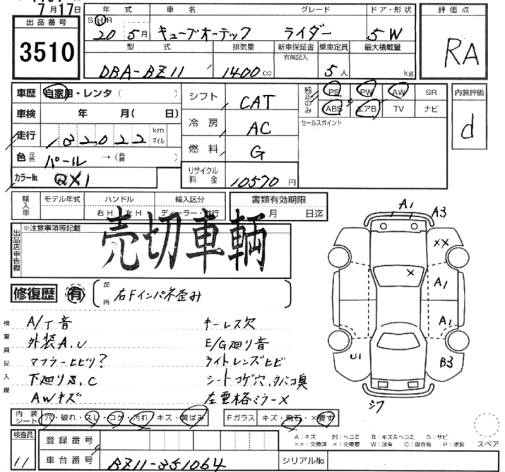 7月17日
出品番号 3510
年式 車名 グレード ドア・形状 評価点
20 5月 キューブオーテック ライダー 5-W RA
型式 排気量 新車保証書 乗車定員 最大積載量
有無記入
DBA-BZ11 1400cc 5人 kg
車歴 自家用・レンタ ( )
シフト CAT
純正のみ PS PW AW SR
ABS エアB TV ナビ
内装評価 d
車検 年 月 ( 日)
走行 132022 km マイル
冷房 AC
セールスポイント
色 元色 パール → (色替)
燃料 G
カラーNo. QX1
リサイクル料金 10570 円
輸入車 モデル年式 ハンドル 輸入区分 書類有効期限
右H 左H ディーラー・並行 月 日迄
出品店申告欄 ※注意事項等記載
売切車輌
修復歴 有 箇所 右Fインパネ歪み
検査員記入欄
A/T音 キーレス欠
外装A.U E/G廻り音
マフラーヒビリ? ライトレンズヒビ
下廻りS.C シートコゲ穴、タバコ臭
AWキズ 左重格ミラーX
A1 A3
XX X A1
A1
U1 B3
シワ
スペア
内装シート 穴・破れ・スレ・コゲ・汚れ キズ・黄ばみ
Fガラス キズ・飛石・X要す
A:キズ U:ヘコミ B:キズ&ヘコミ S:サビ
検査員 11
登録番号
車台番号 BZ11-351064
シリアルNo.